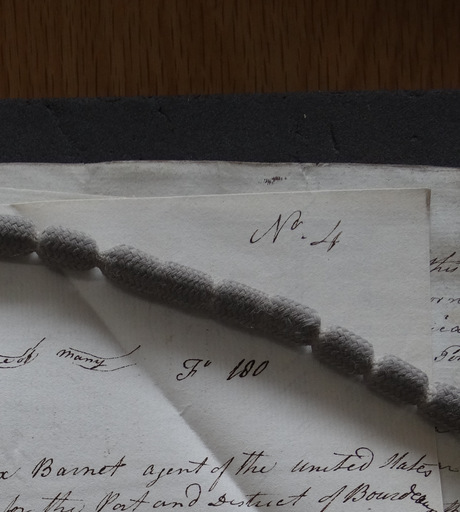 No. 4
this
many
Fo 180
Barnet agent of the United States
for the Port and District of Bourdeaux